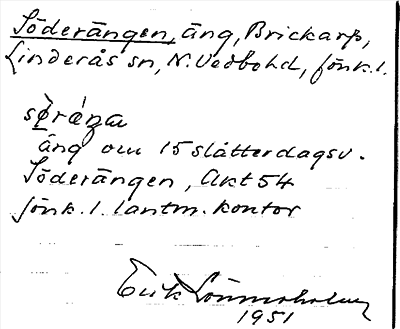 Söderängen, äng, Brickarp,
Linderås sn, N. Vedbohd, Jönk. l.
äng om 15 slåtterdagsv.
Söderängen, Akt 54
Jönk. l. lantm. kontor
Erik
1951